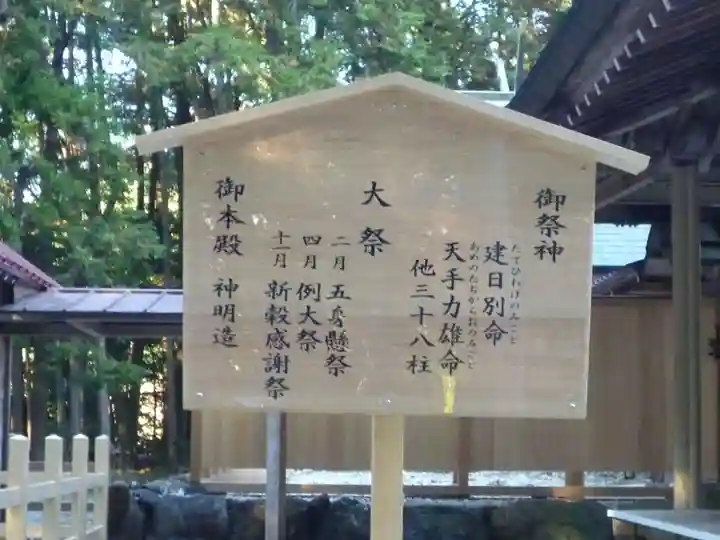 御祭神
建日別命
（たてひわけのみこと
天手力雄命
あめのたぢからおのみこと
他三十八柱
大祭
二月 五身懸祭
四月 例大祭
十一月 新穀感謝祭
御本殿 神明造